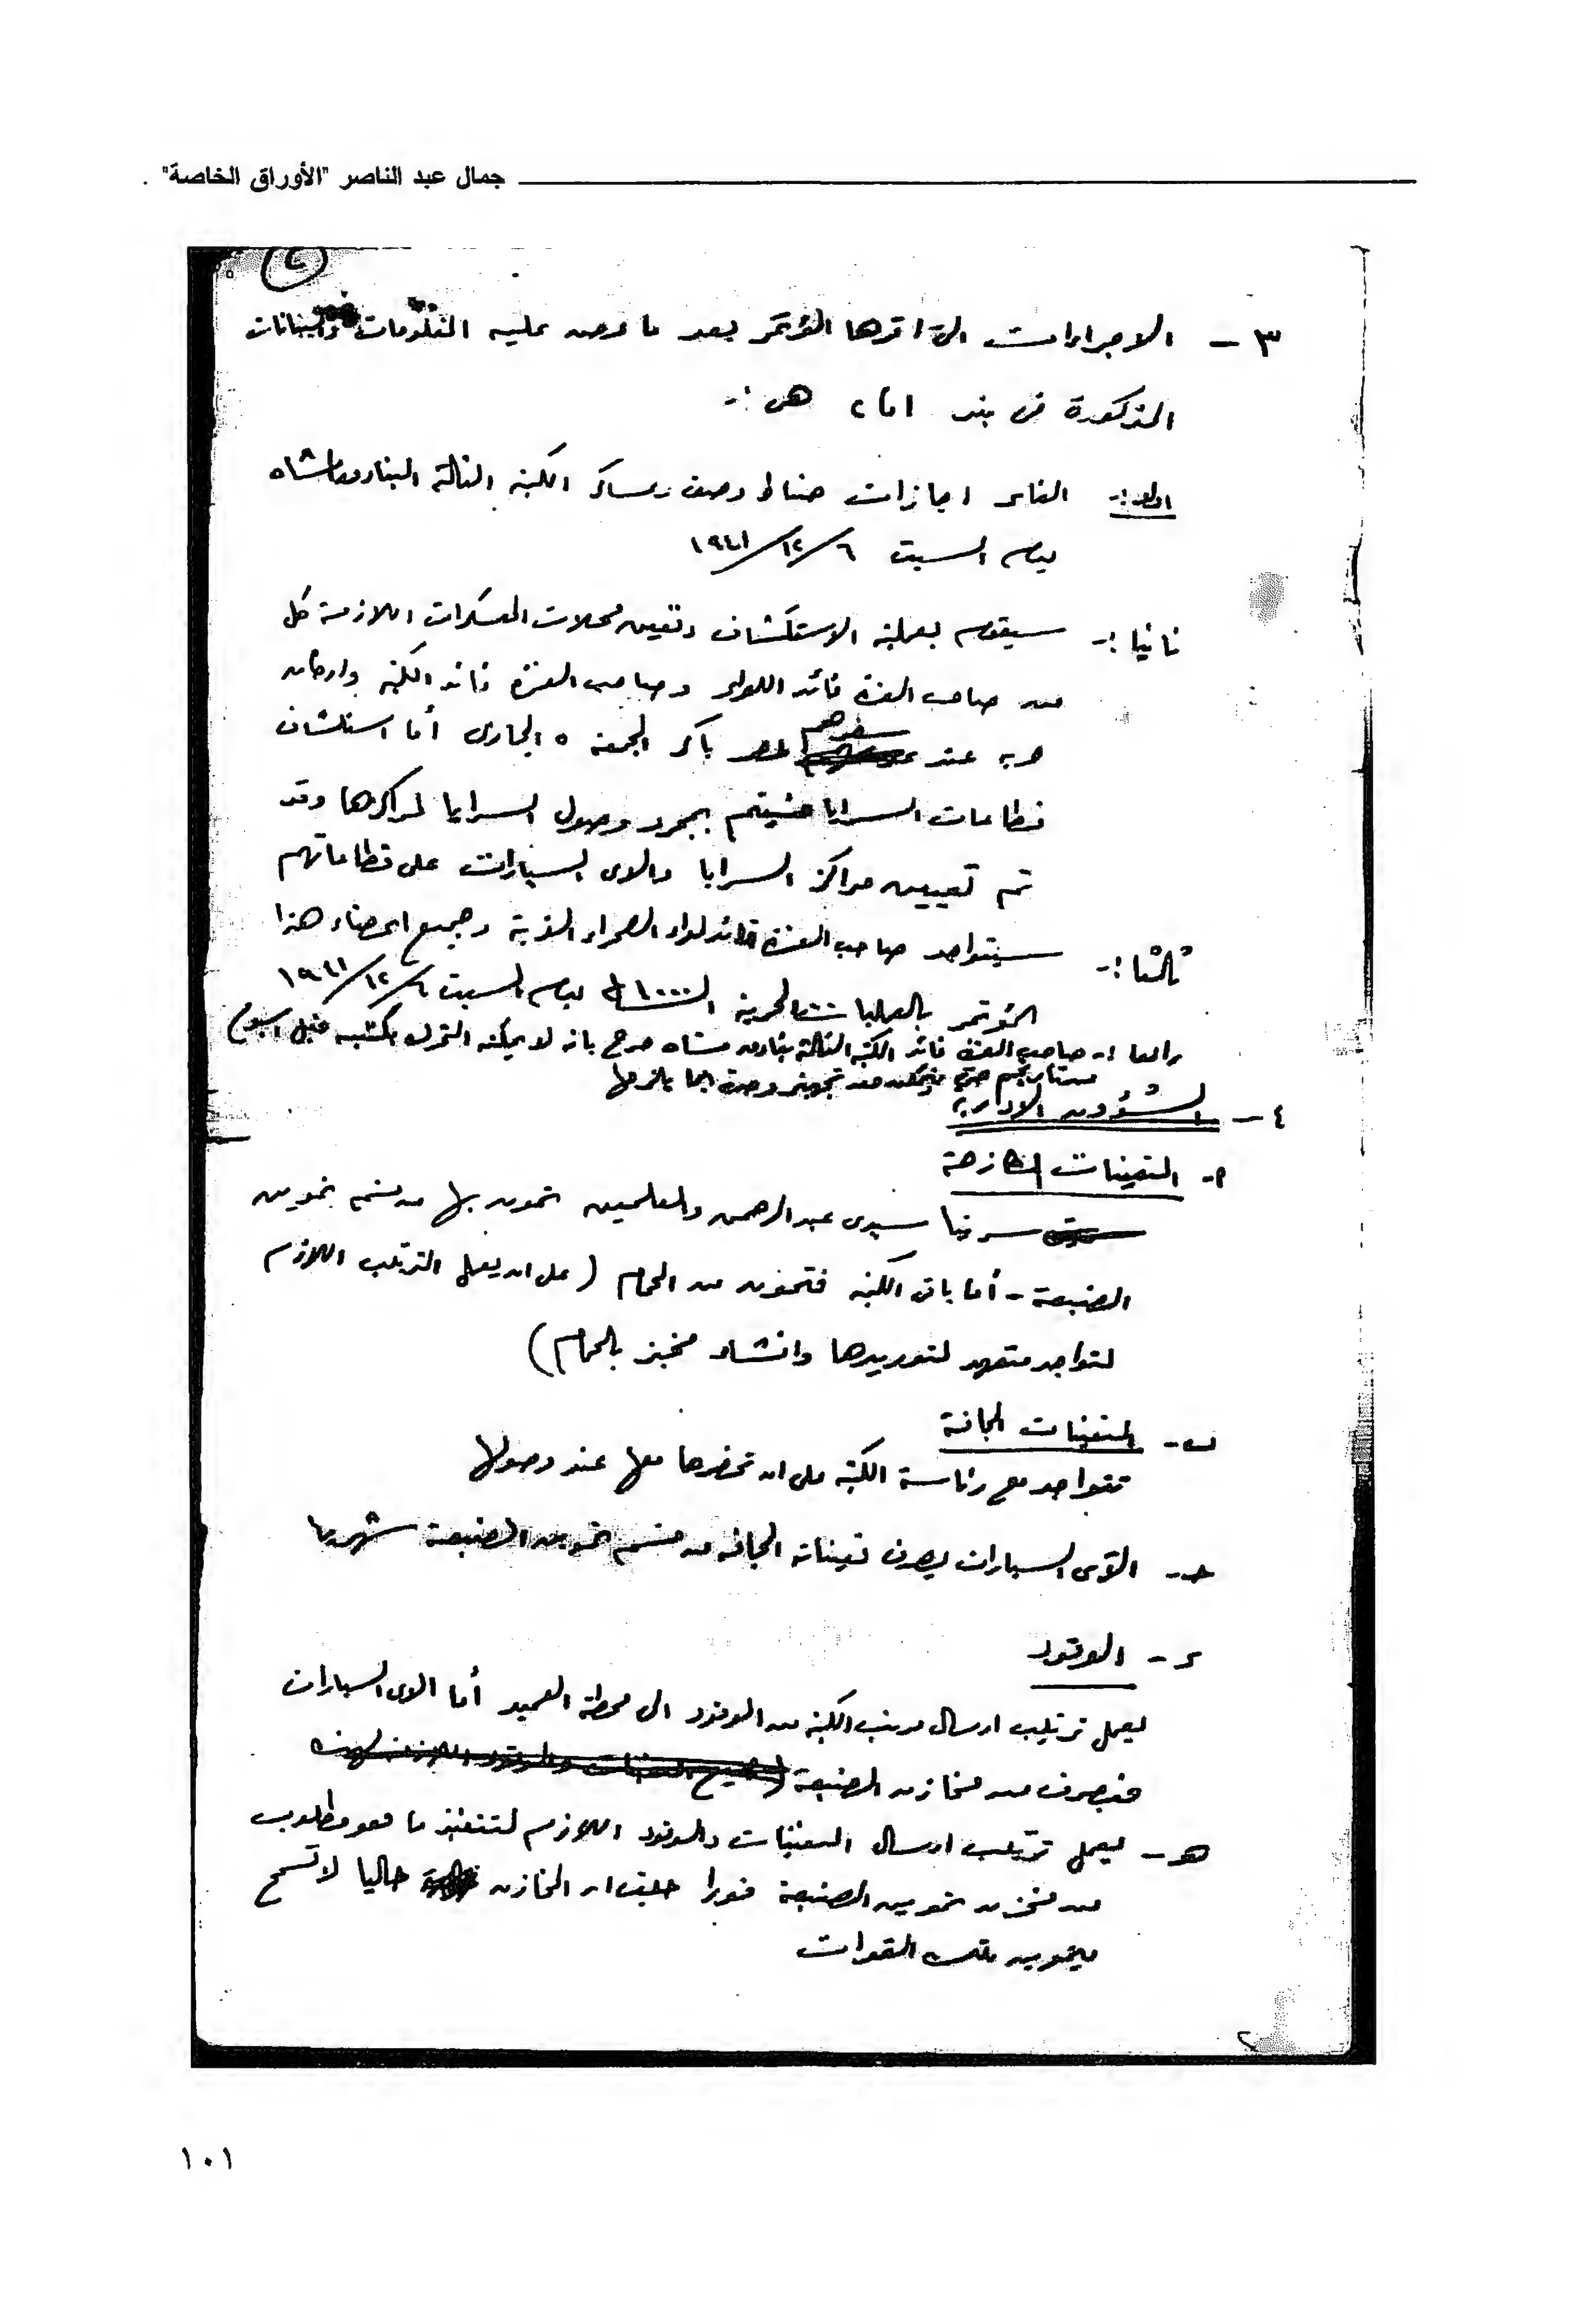 جمال عبد الناصر "الأوراق الخاصة"
٣ - الاجراءات التى اقرها المؤتمر بعد ما عرض عليه المعلومات والبيانات
المذكورة فى بند ١ و ٢ هى :-
اولا :- الغاء اجازات ضباط وصف وعساكر الكتيبة الثالثة البنادق المشاه
يوم السبت ٦/١٢/١٩٤١
ثانيا :- سيقوم بعملية الاستكشاف وتعيين محلات المعسكرات اللازمة كل
من صاحب العزة قائد اللواء وصاحب العزة قائد الكتيبة واركان
حرب عند سفرهم باكر الجمعة ٥ الجارى أما استكشاف
قطاعات السرايا فسيتم بمجرد وصول السرايا لمراكزها وقد
تم تعيين مراكز السرايا والاى السيارات على قطاعاتهم
ثالثا :- سيتواجد صاحب العزة قائد لواء الصحراء الغربية وجميع اعضاء هذا
المؤتمر بالعمليات الحربية الساعة ١٠٠٠ يوم السبت ٦/١٢/١٩٤١
رابعا :- صاحب العزة قائد الكتيبة الثالثة بنادق مشاه صرح بانه لا يمكنه التحرك بكتيبته قبل اسبوع
من تاريخه حتى يتمكن من تجهيز وحدته بما يلزمها
٤ - الشؤون الادارية
ا- التعيينات الطازجة
سرية سيدى عبد الرحمن والعلمين تتمون بها من قسم تموين
الضبعة - أما باقى الكتيبة فتتمون من الحمام (على ان يعمل الترتيب اللازم
لتواجد متعهد لتوريدها وانشاء مخبز بالحمام)
ب- التعيينات الجافة
تتواجد مع رئاسة الكتيبة على ان تحضرها معها عند وصولها
جـ- الآى السيارات يصرف تعييناته الجافة من قسم تموين الضبعة شهريا
د - الوقود
يعمل ترتيب ارسال مرتب الكتيبة من الوقود الى محطة العميد أما الاى السيارات
فيصرف من مخازن الضبعة
هـ - يعمل ترتيب ارسال التعيينات والوقود اللازم لتنفيذ ما هو مطلوب
من مخزن تموين الضبعة فورا حيث ان المخازن حاليا لا تسمح
بتموين تلك القوات
٢
١٠١